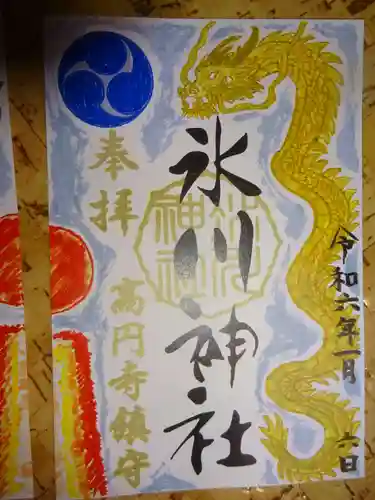 令和六年一月 六日
氷川神社
奉拝 高円寺鎮守
氷川神社